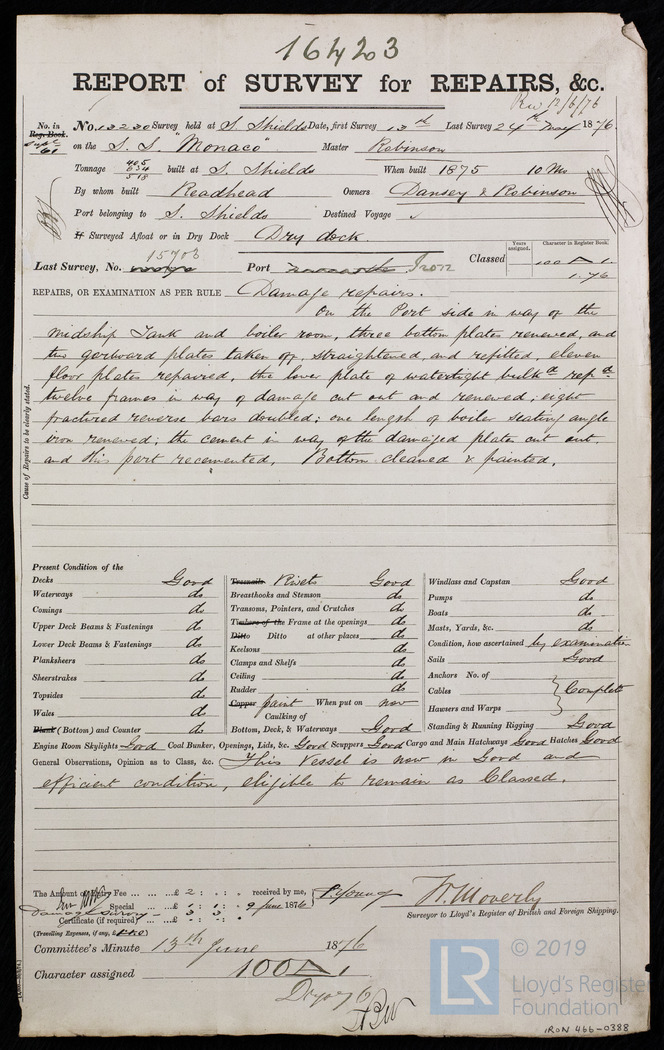 16423
REPORT of SURVEY for REPAIRS, &c.
Rec 12/6/76
No. in Reg. Book. No. 13230 Survey held at S. Shields Date, first Survey 13th Last Survey 24th May 1876
Supt 61 on the S. S. "Monaco" Master Robinson
Tonnage 405 634 518 built at S. Shields When built 1875 10 Mo
By whom built Readhead Owners Dansey & Robinson
Port belonging to S. Shields Destined Voyage
If Surveyed Afloat or in Dry Dock Dry dock.
Last Survey, No. 15703 Port Iron Classed Years assigned. Character in Register Book. 100 A 1. 1.76
REPAIRS, OR EXAMINATION AS PER RULE Damage repairs.
On the Port side in way of the
midship Tank and boiler room, three bottom plates renewed, and
two garboard plates taken off, straightened, and refitted, eleven
floor plates repaired, the lower plate of watertight bulkd repd
twelve frames in way of damage cut out and renewed; eight
fractured reverse bars doubled; one length of boiler seating angle
iron renewed; the cement in way of the damaged plates cut out,
and this part recemented. Bottom cleaned & painted.
Cause of Repairs to be clearly stated.
Present Condition of the
Decks Good
Waterways do
Comings do
Upper Deck Beams & Fastenings do
Lower Deck Beams & Fastenings do
Planksheers do
Sheerstrakes do
Topsides do
Wales do
Plank (Bottom) and Counter do
Treenails Rivets Good
Breasthooks and Stemson do
Transoms, Pointers, and Crutches do
Timbers of the Frame at the openings do
Ditto Ditto at other places do
Keelsons do
Clamps and Shelfs do
Ceiling do
Rudder do
Copper paint When put on now
Caulking of
Bottom, Deck, & Waterways Good
Windlass and Capstan Good
Pumps do
Boats do
Masts, Yards, &c. do
Condition, how ascertained by examination
Sails Good
Anchors No. of
Cables Complete
Hawsers and Warps
Standing & Running Rigging Good
Engine Room Skylights Good Coal Bunker, Openings, Lids, &c. Good Scuppers Good Cargo and Main Hatchways Good Hatches Good
General Observations, Opinion as to Class, &c. This Vessel is now in Good and
efficient condition, eligible to remain as Classed.
The Amount of Entry Fee ... £ 2 : : received by me,
Special ... £ 1 : 1 : 9 June 1876 P. Young W. Moverly
Damage Survey 3 3
Certificate (if required)
Surveyor to Lloyd's Register of British and Foreign Shipping.
(Travelling Expenses, if any, £
Committee's Minute 13th June 1876
Character assigned 100 A 1
© 2019
LR
Lloyd's Register
Foundation
IRON 466-0388